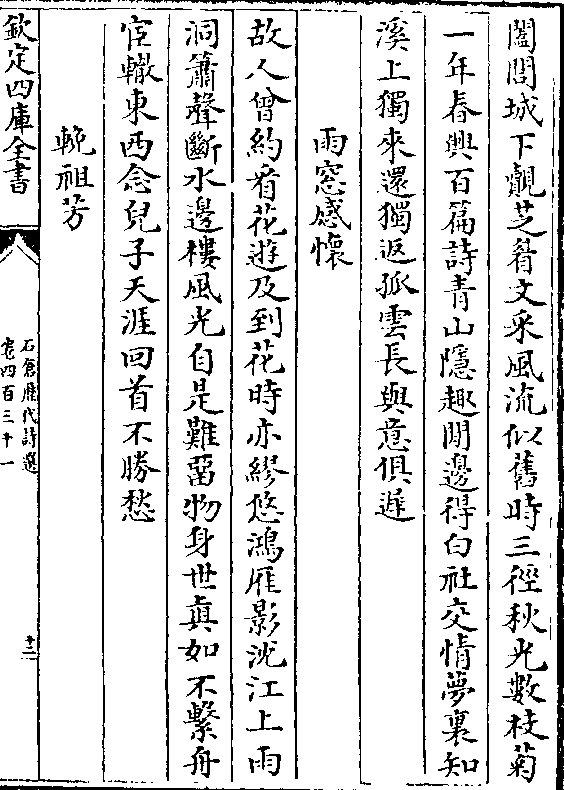 闔閭城下覿芝眉文采風流似舊時三徑秋光數枝菊
一年春興百篇詩青山隱趣閒邊得白社交情夢裏知
溪上獨來還獨返孤雲長與意俱遲
雨窓感懷
故人曾約看花遊及到花時亦繆悠鴻雁影沈江上雨
洞簫聲斷水邊樓風光自是難留物身世真如不繫舟
宦轍東西念兒子天涯回首不勝愁
輓祖芳
欽定四庫全書
石倉歷代詩選
卷四百三十一
十二